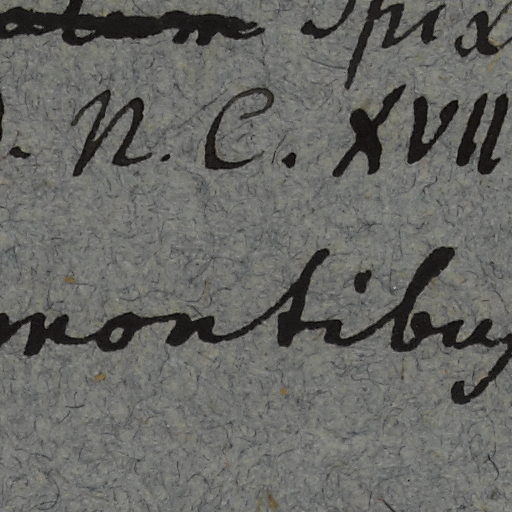 Spix
. N. C. XVII
montibus